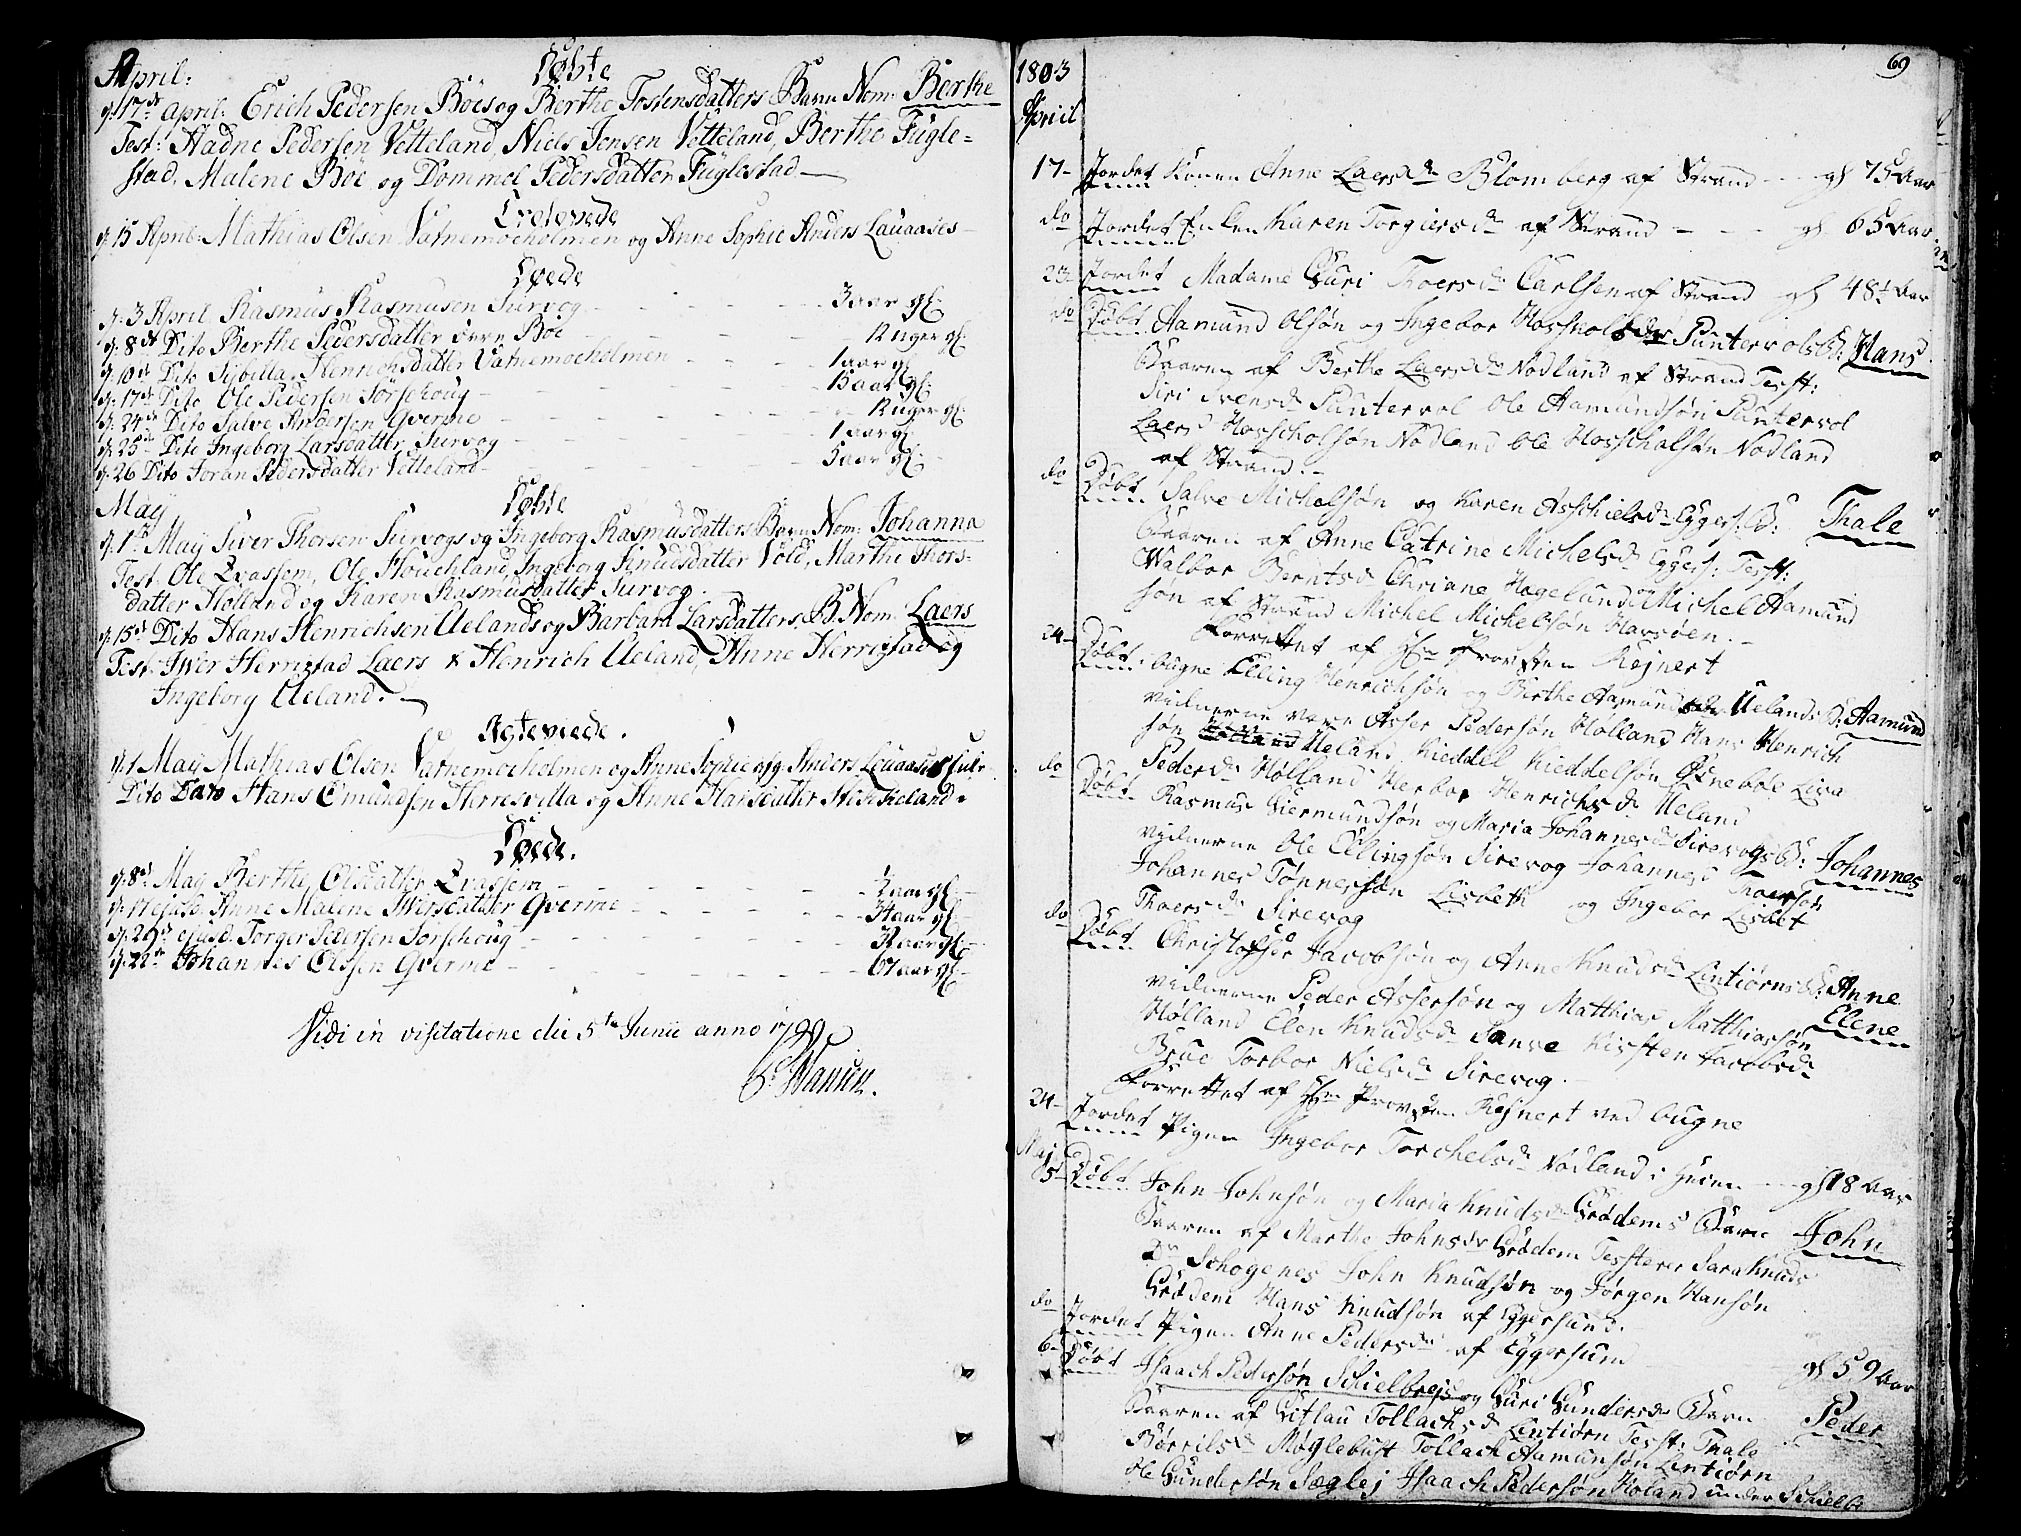 April:
Døbte
d: 17de April: Erich Pedersen Böes og Berthe Tostensdatters Barn Nom: Berthe
Test: Hadne Pedersen Vetteland, Niels Jensen Vetteland, Berthe Fügle=
stad, Malene Böe og Dommel Pedersdatter Füglestad
Trolovede
d. 15 April: Mathias Olsen Vatnemoeholmen og Anne Sophie Anders Lauaases
Døede
d. 3 April Rasmus Rasmusen Survog - - - 3 aar gl:
d. 8de Dito Berthe Pedersdatter Böe - - - Ruger gl:
d. 10de Dito Sibilla Henrichsdatter Vatnemoeholmen - - - 1 aar gl
d: 17de Dito Ole Pedersen Sörsehoug - - - 15 aar gl:
d: 24de Dito Salve Andersen Qverme - - - Ruger gl:
d. 25de Dito Ingeborg Larsdatter Survog - - - 1 aar gl
d. 26 Dito Joran Pedersdatter Vetteland - - - 5 aar gl:
May Døbte
d. 1te May Siver Thorsen Survogs og Ingeborg Rasmusdatters Barn Nom: Johanna
Test: Ole Qvassem, Ole Houchland, Ingeborg Knudsdatter Vold, Marthe Thors-
datter Holland og Karen Rasmusdatter Survog.
d. 15de Dito Hans Henrichsen Uelands og Barbara Larsdatters B: Nom: Laers
Test: Iwer Herrigstad Laers & Henrich Ueland, Anne Herrigstad og
Ingeborg Ueland.
Ægteviede.
d. 1 May Mathias Olsen Vatnemoeholmen og Anne Sophie Anders Lauaases
Dito Dato Hans Omundsen Herresvilla og Anne Hansdatter
Døede.
d. 8de May Berthe Olsdatter Qvassem - - - aar gl:
d. 17 ejusd. Anne Malene Iwersdatter Qverme - - - aar gl:
ejusd. Torger Pedersen Sörsehoug - - - aar gl:
d. 22de Johannes Olssen Qverme - - - 67 aar gl:
Vidi in visitatione die 5te Junii anno
1803 69
April
17- Jordet Konen Anne Laersdr Blomberg af Strand - - gl 75 Aar
do Jordet Enken Karen Torgiersdr af Strand - - - gl 65 Aar
23- Jordet Madame Guri Thoersdr Carlsen af Strand gl 48½ Aar
do Døbt Aamund Olsøn og Ingebor Puntervols B: Hans
Baaren af Berthe Laersdr Nodland af Strand Testt:
Siri Svensdr Puntervol Ole Aamundsøn Puntervol
Laers Hosscholsøn Nodland Ole Hosscholsøn Nodland
af Strand. -
do Døbt Salve Michelsøn og Karen Asschielsdr Eggers: B: Thale
Baaren af Anne Catrine Michelsdr Eggers: Testt:
Walbor Berntsd Chriane Hogelund Michel Aamund
søn af Strand Michel Michelsøn Havsøen. -
Forrettet af Hr Provsten Rejnert
24- Døbt Elling Henrichsøn og Berthe Aamundsdr Uelands B: Aamund
vidnerne vare Asser Pedersøn Holland Hans Henrich
søn Ueland Kieddel Kieddelsøn Ognebøe Liva
Pedersdr Hølland Herbor Henrichsdr Ueland
do Døbt Rasmus Giermundsøn og Maria Johannesdr Sirevogs B: Johannes
vidnerne Ole Ellingsøn Sirevog Johannes Thoersøn
Johannes Tønnersøn Lisbeth og Ingebor Lisbet
Thoersdr Sirevog
do Døbt Christopher Jacobsøn og Anne Knudsdr Lintiørns B: Anne
vidnerne Peder Assersøn og Matthias Matthiasøn Elene
Hølland Elen Knudsdr Kirsten Jacobsdr
Brue Torbor Nielsdr Sirevog. -
Forrettet af Hr Provsten Rejnert ved
24- Jordet Pigen Ingebor Torchelsdr Nodland i - - gl 18 Aar
Maj
5- Døbt John Johnsøn og Maria Knudsdr Grødems Barn John
Baaren af Marthe Johnsdr Grødem Testterer Sara Knuds
dr Schogenes John Knudsøn og Jørgen Hansøn
Grødem Hans Knudsøn af Eggersund.
do Jordet Pigen Anne Pedersdr af Eggersund gl 59 Aar
6- Døbt Isaach Pedersøn Schielbreds og Guri Gundersdr Barn Peder
Baaren af Gislau Tollachsd Lintiørn Testt: Thale
Børrilsdr Møglebust Tollach Aamunsøn Lintiørn
Ole Gundersøn Søglej Isaach Pedersøn Holand under